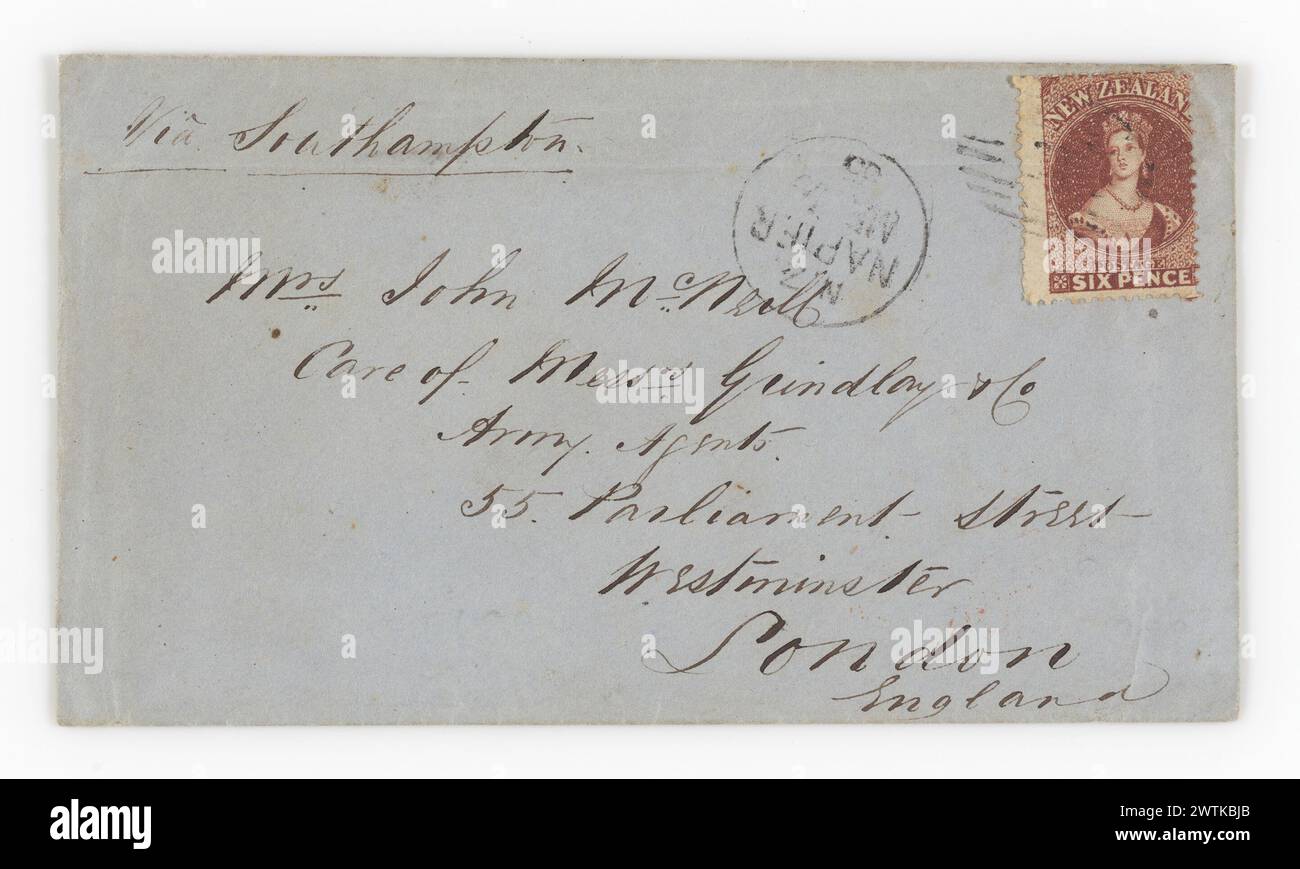 Via Southampton.
NEW ZEALAN
SIX PENCE
NAPIER
N.Z
Mrs John McNeill
Care of Messrs Grindlay & Co
Army Agents.
55. Parliament Street
Westminster
London
England
alamy
alamy
Image ID: 2WTKBJB
www.alamy.com